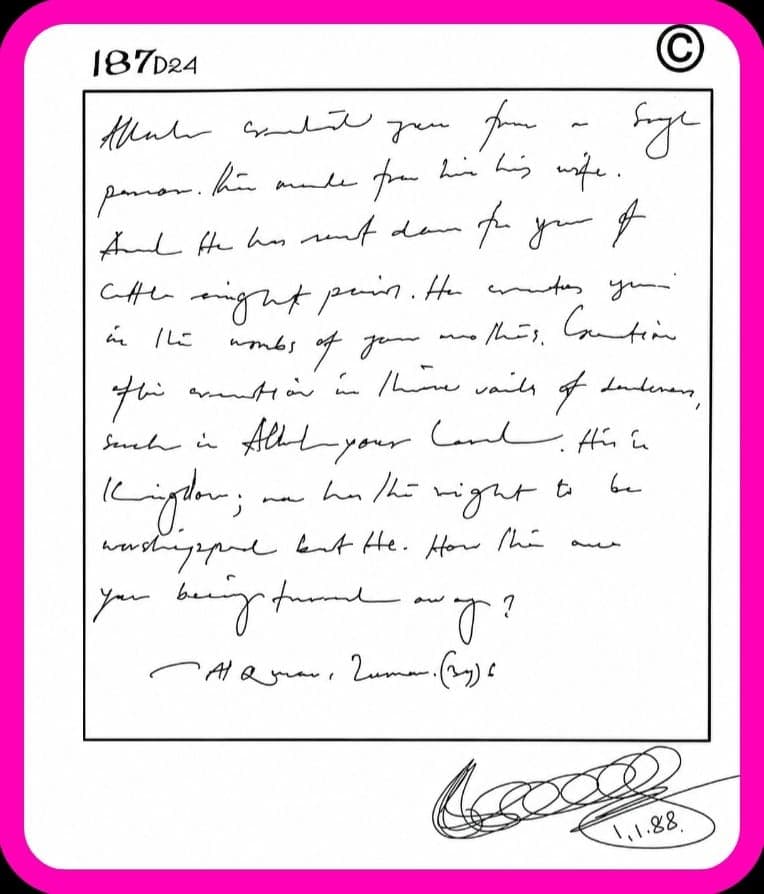 187D24
©
Allah created you from a Single
person. Then made from him his wife.
And He has sent down for you of
Cattle eight pairs. He creates you
in the wombs of your mothers, Creation
after creation in three veils of darkness,
Such is Allah your Lord. His is
Kingdom; none has the right to be
worshipped but He. How then are
you being turned away?
— Al Quran, Zumar. (39) 6
1.1.88.